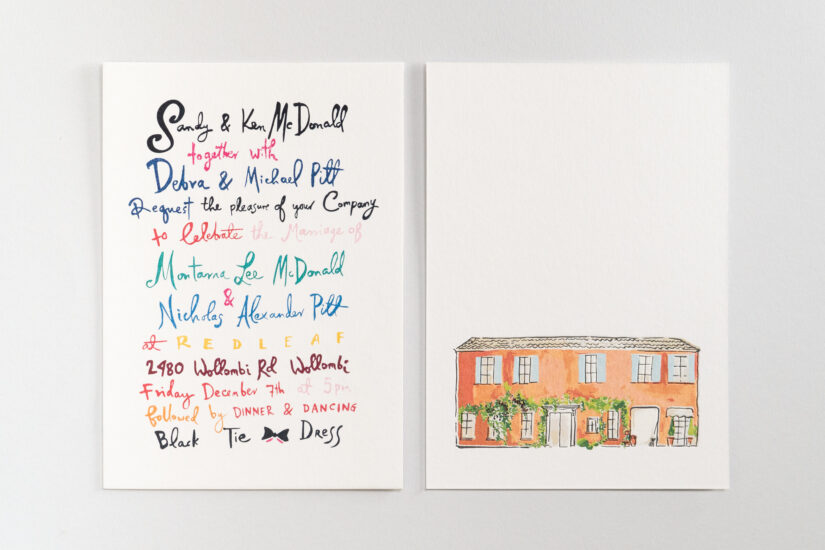 Sandy & Ken McDonald
together with
Debra & Michael Pitt
Request the pleasure of your Company
to Celebrate the Marriage of
Montanna Lee McDonald
&
Nicholas Alexander Pitt
at REDLEAF
2980 Wollombi Rd Wollombi
Friday December 7th at 5pm
followed by DINNER & DANCING
Black Tie Dress